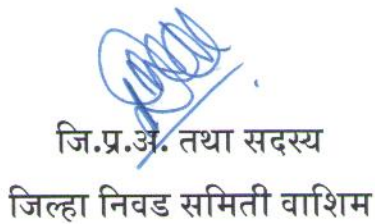 जि.प्र.अ. तथा सदस्य
जिल्हा निवड समिती वाशिम